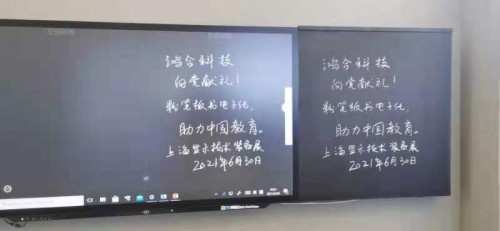 鸿合科技
向党献礼!
粉笔板书电子化,
助力中国教育。
上海显示技术装备展
2021年6月30日
鸿合科技
向党献礼!
粉笔板书电子化,
助力中国教育。
上海显示技术装备展
2021年6月30日